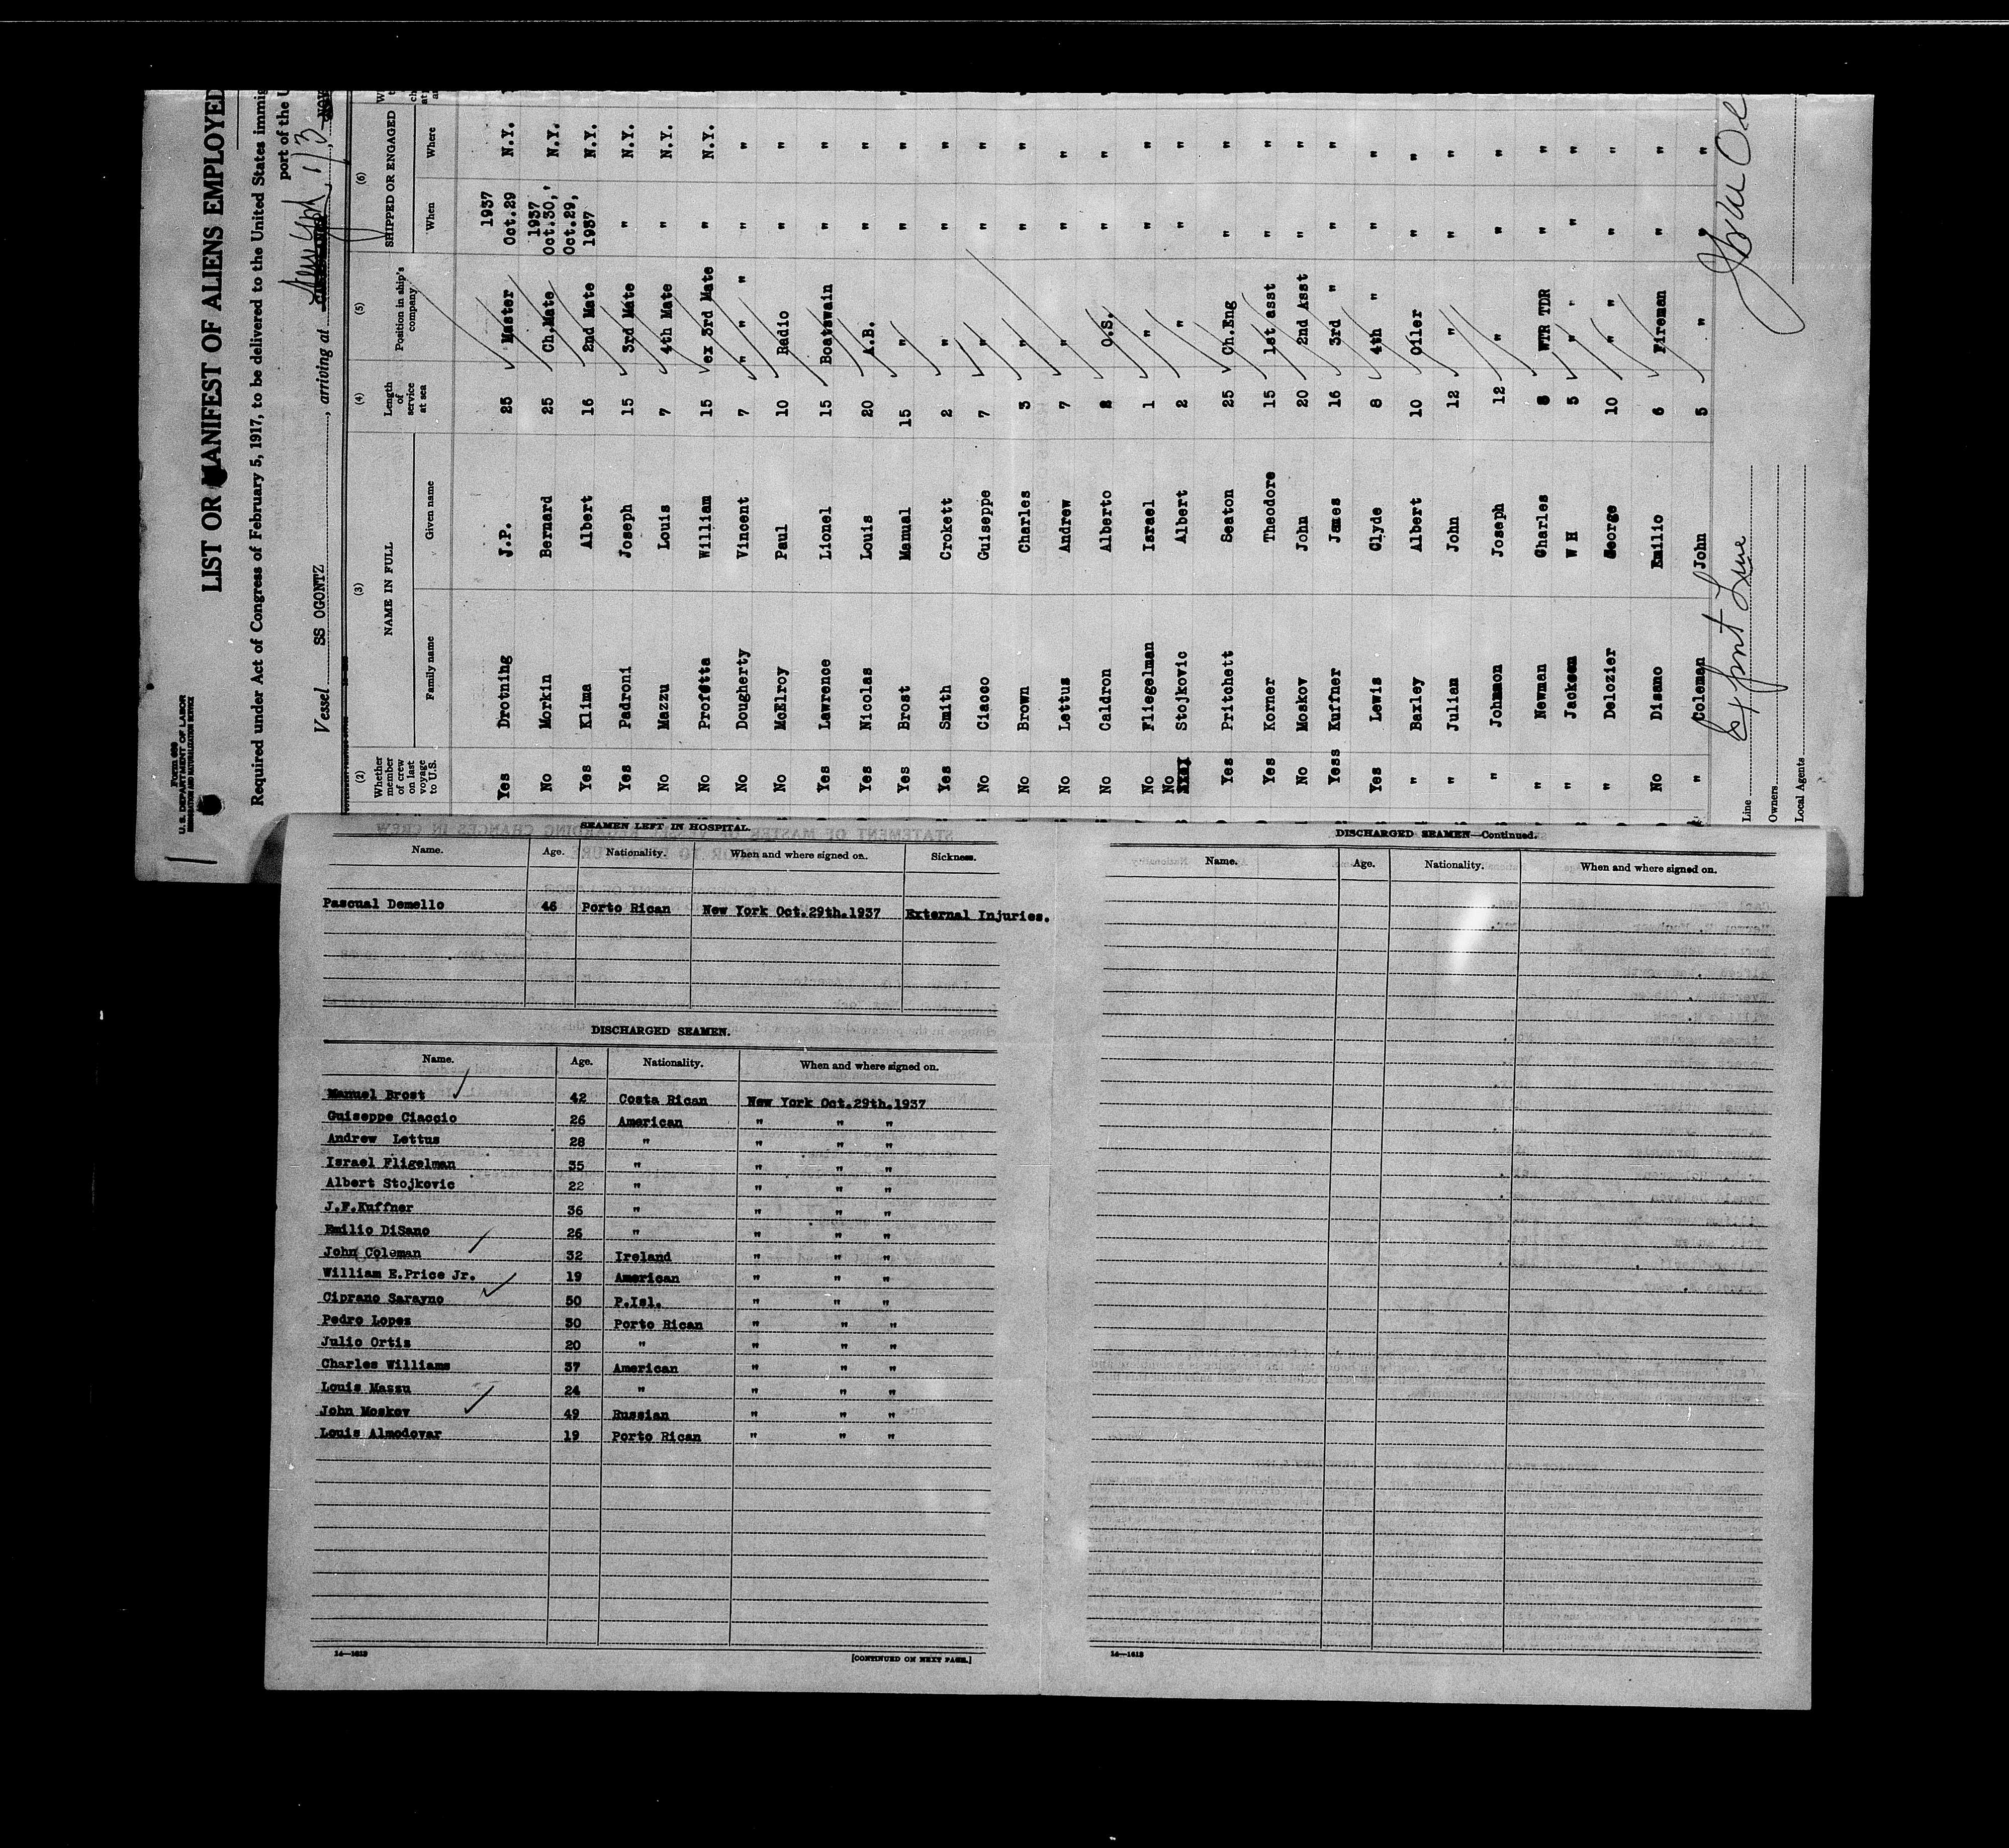 Form 689
U. S. DEPARTMENT OF LABOR
IMMIGRATION AND NATURALIZATION SERVICE
LIST OR MANIFEST OF ALIENS EMPLOYED
Required under Act of Congress of February 5, 1917, to be delivered to the United States immig
port of the U
Vessel SS OGONTZ , arriving at New York, 1/3 NOV
(2) (3) (4) (5) (6)
Whether member of crew on last voyage to U.S. NAME IN FULL Length of service at sea Position in ship's company SHIPPED OR ENGAGED
Family name Given name When Where
Yes Drotning J.P. 25 Master 1937 Oct.29 N.Y.
No Morkin Bernard 25 Ch.Mate 1937 Oct.30,' N.Y.
Yes Klima Albert 16 2nd Mate Oct.29, 1937 N.Y.
Yes Padroni Joseph 15 3rd Mate " N.Y.
No Mazzu Louis 7 4th Mate " N.Y.
No Profetta William 15 ex 3rd Mate " N.Y.
No Dougherty Vincent 7 " " " " "
No McElroy Paul 10 Radio " "
Yes Lawrence Lionel 15 Boatswain " "
Yes Nicolas Louis 20 A.B. " "
Yes Brost Manual 15 " " "
Yes Smith Crokett 2 " " "
No Ciacco Guiseppe 7 " " "
No Brown Charles 3 " " "
No Lettus Andrew 7 " " "
No Caldron Alberto 2 O.S. " "
No Fliegelman Israel 1 " " "
No Stojkovic Albert 2 " " "
Yes Pritchett Seaton 25 Ch.Eng " "
Yes Korner Theodore 15 1st asst " "
No Moskov John 20 2nd Asst " "
Yess Kuffner James 16 3rd " " "
Yes Lewis Clyde 8 4th " " "
" Baxley Albert 10 Oiler " "
" Julian John 12 " " "
" Johnson Joseph 12 " " "
" Newman Charles 8 WTR TDR " "
" Jackson W H 5 " " " "
" Delozier George 10 " " " "
No Disano Emilio 6 Fireman " "
" Coleman John 5 " " "
Line Export Line
Owners
Local Agents
SEAMEN LEFT IN HOSPITAL.
Name. Age. Nationality. When and where signed on. Sickness.
Pascual Demello 46 Porto Rican New York Oct.29th.1937 External Injuries.
DISCHARGED SEAMEN.
Name. Age. Nationality. When and where signed on.
Manuel Brost 42 Costa Rican New York Oct.29th.1937
Guiseppe Ciaccio 26 American " " "
Andrew Lettus 28 " " " "
Israel Fligelman 35 " " " "
Albert Stojkovic 22 " " " "
J.F.Kuffner 36 " " " "
Emilio DiSano 26 " " " "
John Coleman 32 Ireland " " "
William E.Price Jr. 19 American " " "
Ciprano Sarayno 50 P.Isl. " " "
Pedro Lopez 30 Porto Rican " " "
Julio Ortis 20 " " " "
Charles Williams 37 American " " "
Louis Massu 24 " " " "
John Moskov 49 Russian " " "
Louis Almodovar 19 Porto Rican " " "
14—1613
[CONTINUED ON NEXT PAGE.]
DISCHARGED SEAMEN—Continued.
Name. Age. Nationality. When and where signed on.
14—1613